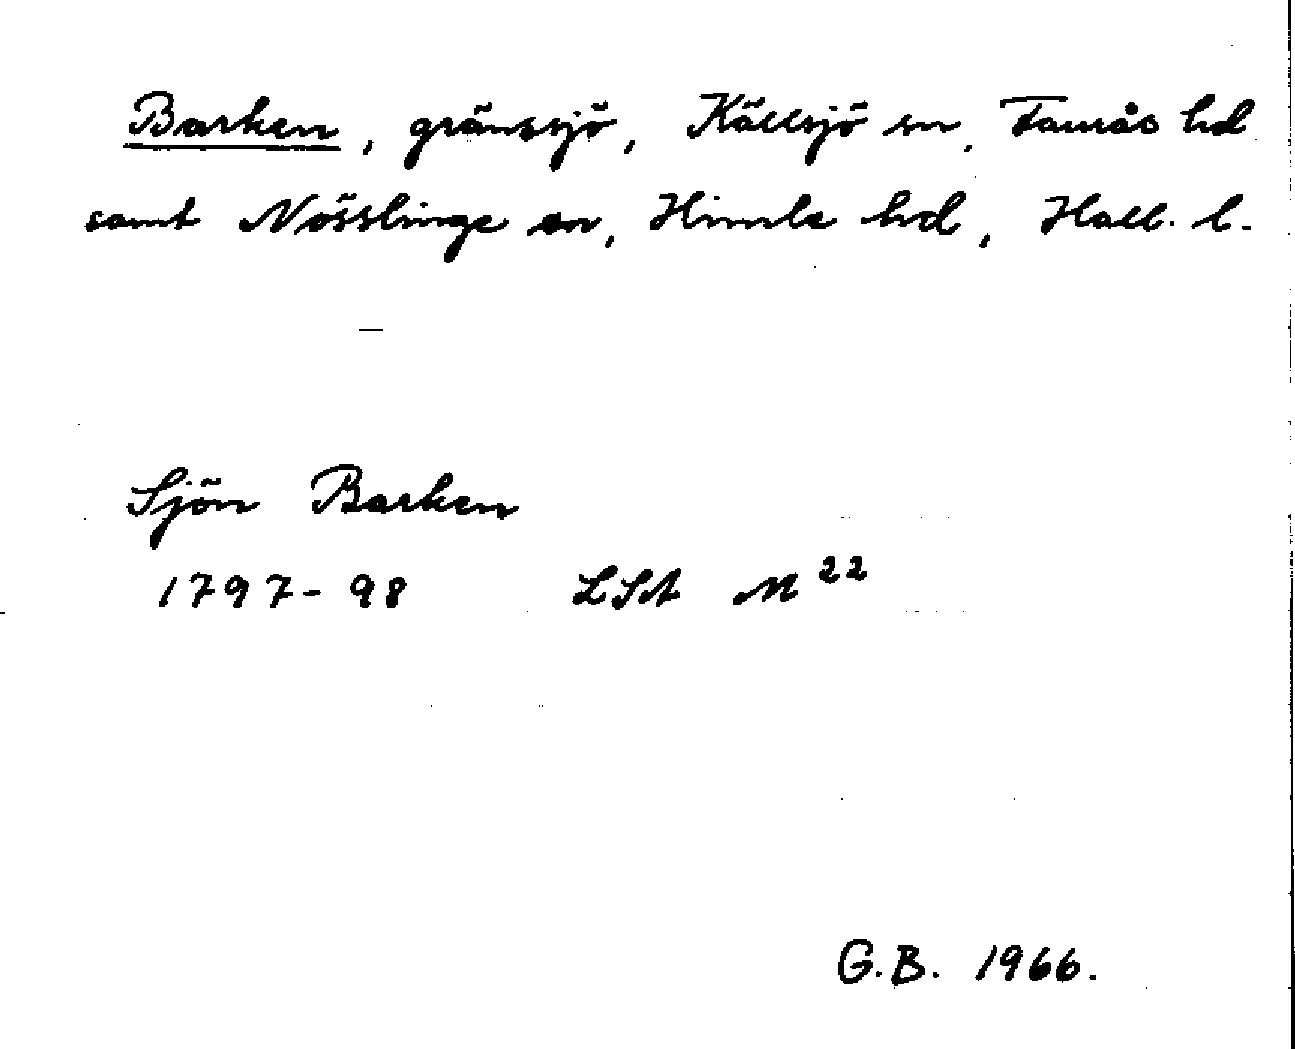 Barken, gränssjö, Källsjö sn, Faurås hd
samt Nösslinge sn, Himle hd, Hall. l.
Sjön Barken
1797-98 LSA M 22
G.B. 1966.